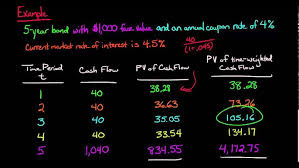 Example
5-year bond with $1,000 face value and an annual coupon rate of 4%
Current market rate of interest is 4.5%
40
(1+.045)
Time Period t Cash Flow PV of Cash Flow PV of time-weighted Cash Flow
1 40 38.28 38.28
2 40 36.63 73.26
3 40 35.05 105.16
4 40 33.54 134.17
5 1,040 834.55 4,172.75